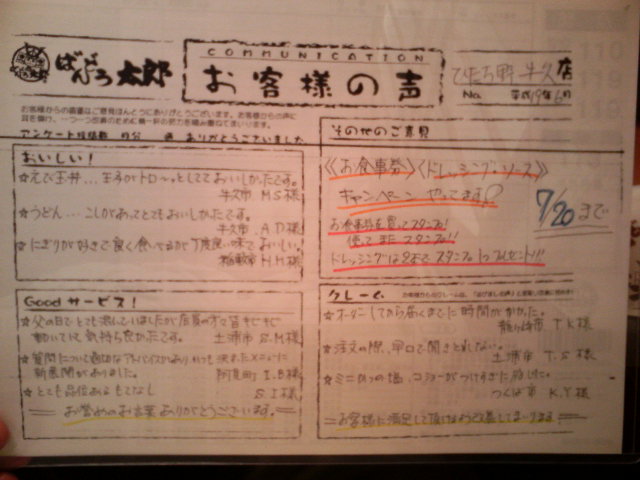 COMMUNICATION
ばんぶう太郎
お客様の声
ひたち野牛久店
No. 平成19年6月
アンケート投稿数 通 ありがとうございました
その他のご意見
おいしい!
☆えび玉丼...玉子がトローっとしてておいしかったです。
牛久市 M.S様
☆うどん...こしがあってとてもおいしかったです。
牛久市 A.D様
☆にぎりが好きで良く食べてるが丁度良い味でおいしい。
稲敷市 H.H様
《お食事券》《ドレッシング・ソース》
キャンペーンやってます
7/20まで
お食事券を買ってスタンプ!
使ってまたスタンプ!!
ドレッシングは2本でスタンプ1つプレゼント!!!
Goodサービス!
☆父の日でとても混んでいましたが店員の方々皆キビキビ
動いていて気持ち良かったです。 土浦市 S.M様
☆質問について適切なアドバイスがありいつも決まったメニューに
新展開がありました。 阿見町 I.B様
☆とても品位あるもてなし S.I様
お誉めのお言葉ありがとうございます。
クレーム
☆オーダーしてから届くまでに時間がかかった。
龍ヶ崎市 T.K様
☆注文の際、早口で聞きとれない。
土浦市 T.S様
☆ミニかつの塩、コショーがつけすぎた感じした。
つくば市 K.Y様
お客様に満足して頂けるよう改善してまいります